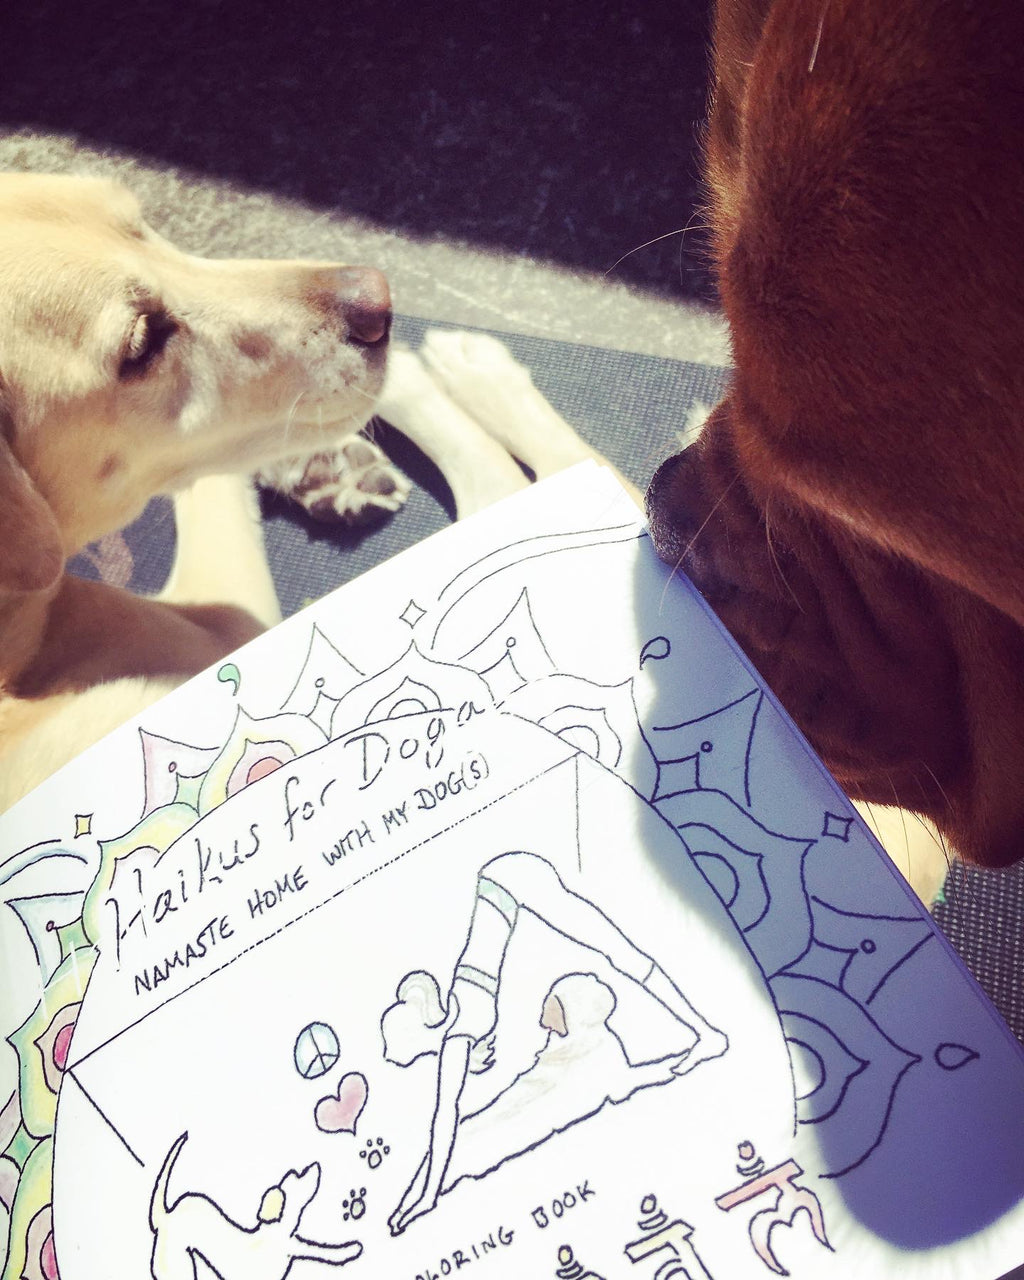 Haikus for Doga
NAMASTE HOME WITH MY DOG(S)
OLORING BOOK